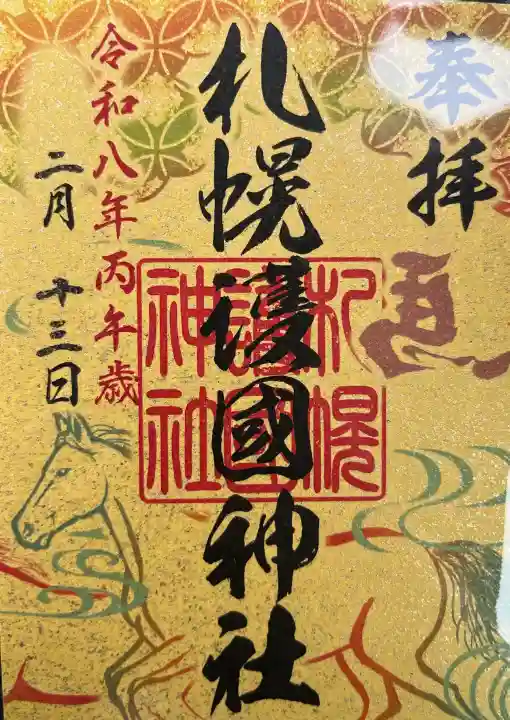 奉拝
札幌護國神社
札幌
護國
神社
令和八年丙午歳
二月十三日